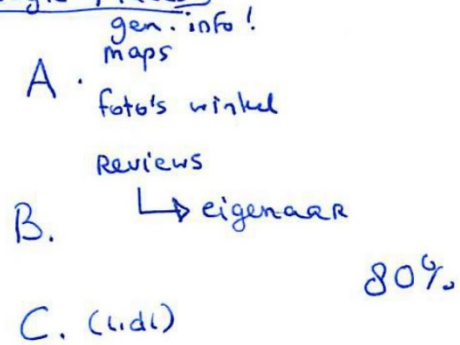 gen. info!
A. maps
foto's winkel
Reviews
↳ eigenaar
B.
80%
C. (Lidl)